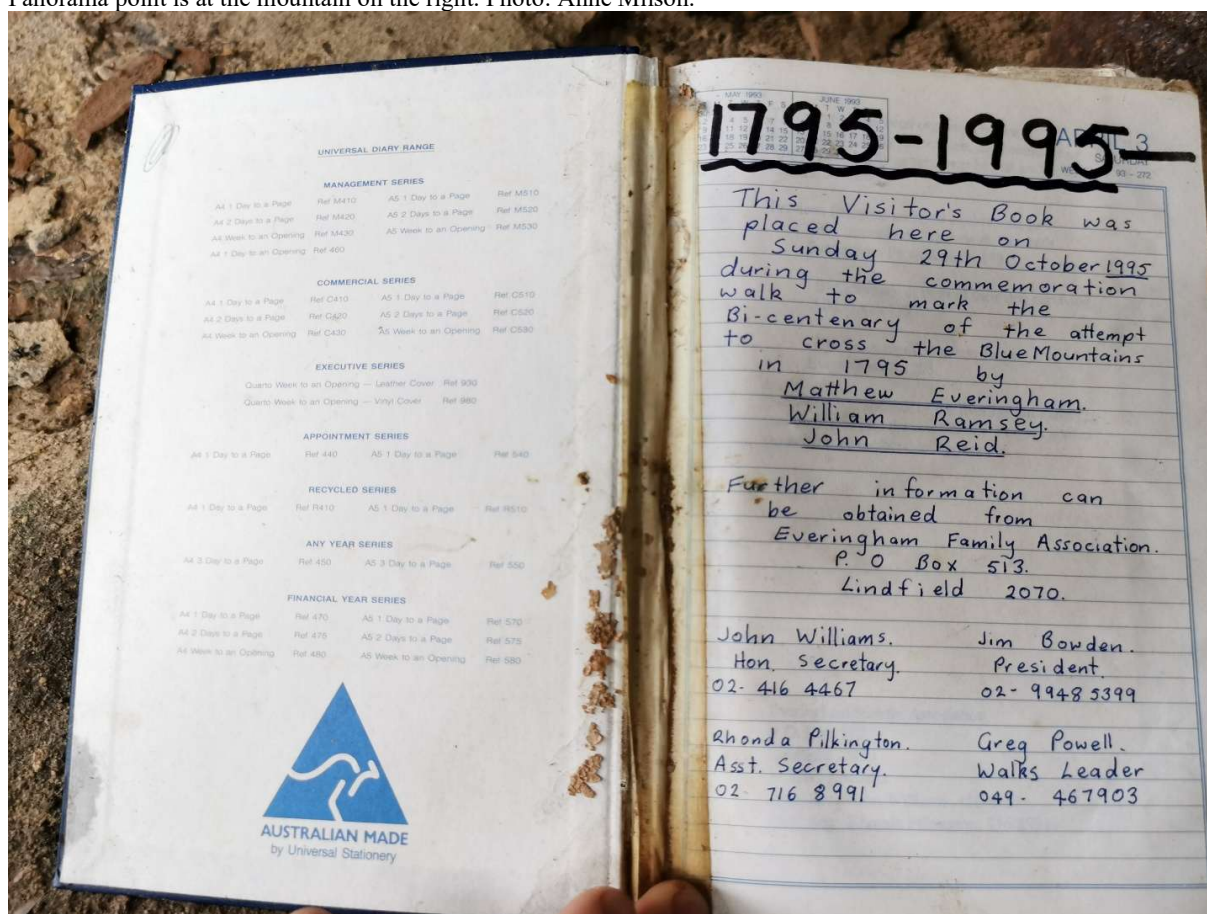 Panorama point is at the mountain on the right. Photo: Anne Milson.
UNIVERSAL DIARY RANGE
MANAGEMENT SERIES
A4 1 Day to a Page Ref M410 A5 1 Day to a Page Ref M510
A4 2 Days to a Page Ref M420 A5 2 Days to a Page Ref M520
A4 Week to an Opening Ref M430 A5 Week to an Opening Ref M530
A4 1 Day to an Opening Ref 460
COMMERCIAL SERIES
A4 1 Day to a Page Ref C410 A5 1 Day to a Page Ref C510
A4 2 Days to a Page Ref C420 A5 2 Days to a Page Ref C520
A4 Week to an Opening Ref C430 A5 Week to an Opening Ref C530
EXECUTIVE SERIES
Quarto Week to an Opening — Leather Cover Ref 930
Quarto Week to an Opening — Vinyl Cover Ref 960
APPOINTMENT SERIES
A4 1 Day to a Page Ref 440 A5 1 Day to a Page Ref 540
RECYCLED SERIES
A4 1 Day to a Page Ref R410 A5 1 Day to a Page Ref R510
ANY YEAR SERIES
A4 3 Day to a Page Ref 450 A5 3 Day to a Page Ref 550
FINANCIAL YEAR SERIES
A4 1 Day to a Page Ref 470 A5 1 Day to a Page Ref 570
A4 2 Days to a Page Ref 475 A5 2 Days to a Page Ref 575
A4 Week to an Opening Ref 480 A5 Week to an Opening Ref 580
AUSTRALIAN MADE
by Universal Stationery
MAY 1993 JUNE 1993
APRIL 3
SATURDAY
93 – 272
1795-1995-
This Visitor's Book was
placed here on
Sunday 29th October 1995
during the commemoration
walk to mark the
Bi-centenary of the attempt
to cross the Blue Mountains
in 1795 by
Matthew Everingham.
William Ramsey.
John Reid.
Further information can
be obtained from
Everingham Family Association.
P. O Box 513.
Lindfield 2070.
John Williams. Jim Bowden.
Hon. Secretary. President.
02- 416 4467 02- 9948 5399
Rhonda Pilkington. Greg Powell.
Asst. Secretary. Walks Leader
02- 716 8991 049- 467903